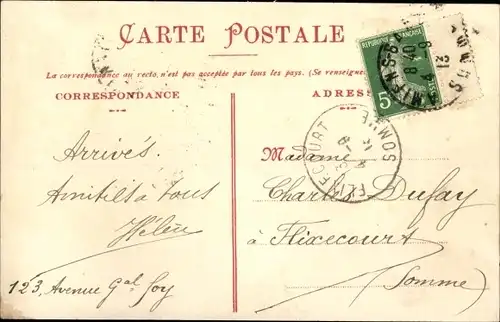 CARTE POSTALE
La correspondance au recto, n'est pas acceptée par tous les pays. (Se renseigner
CORRESPONDANCE
ADRESSE
REPUBLIQUE FRANÇAISE
5
AMIENS
8 40
SOMME
FLIXECOURT
SOMME
Arrivés.
Amitiés à Tous
Hélèn
123, Avenue Gal Foy
Madame
Charles Dufay
à Flixecourt
(Somme)